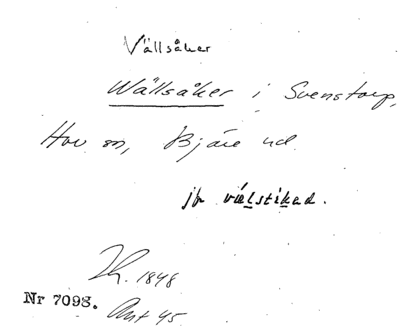 Vällsåker
Wällsåker i Svenstorp,
Hov sn, Bjäre hd
jfr vælstikad.
1848
Nr 7098. Ant 45